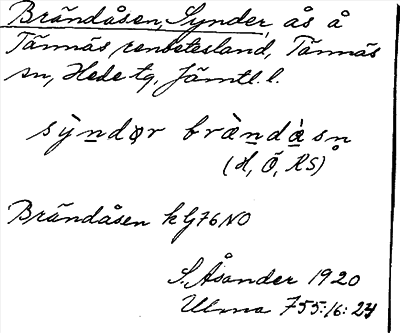 Brändåsen, Synder, ås å
Tännäs renbetesland, Tännäs
sn, Hede tg, Jämtl. l.
sỳndər brä̀ndå̀sn̥
(H, Ö, RS)
Brändåsen kG76NO
S. Åsander 1920
Ulma 755:16:24